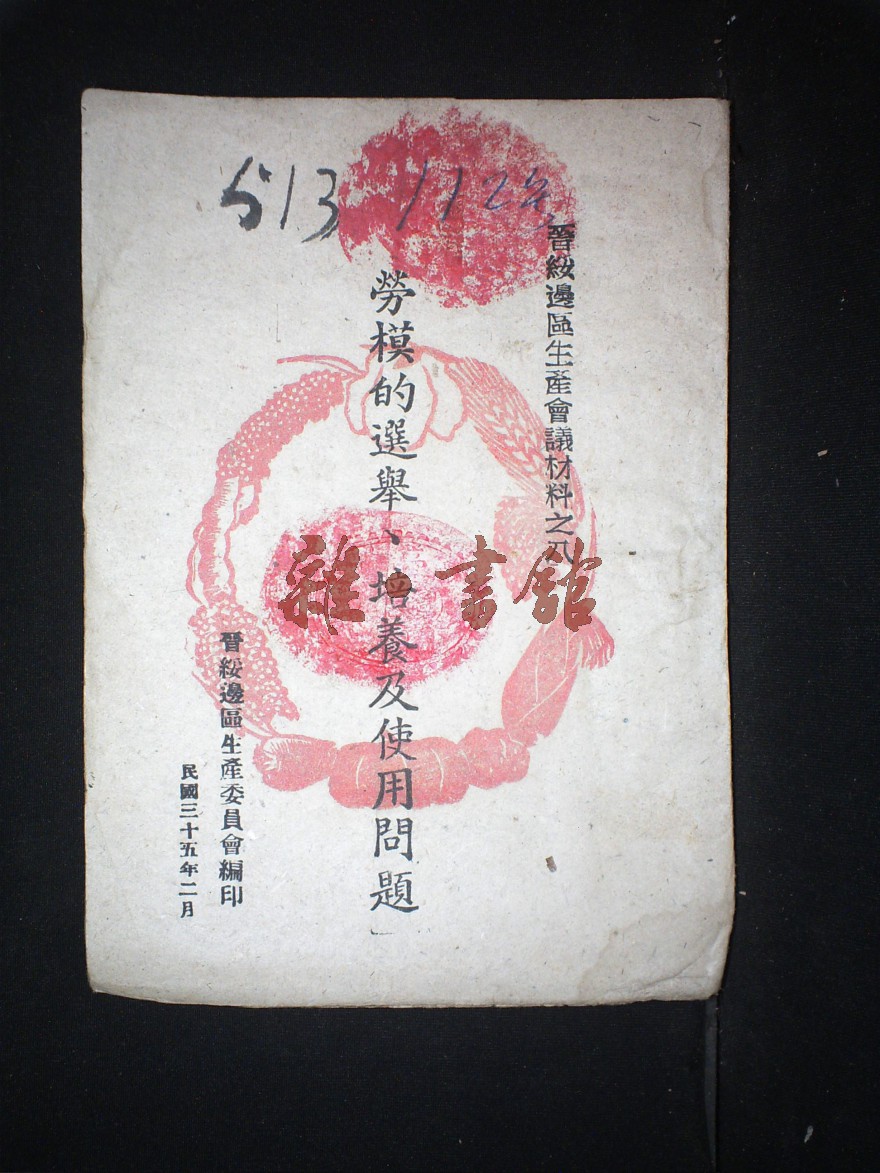 513 112
晉綏邊區生產會議材料之八
勞模的選舉、培養及使用問題」
晉綏邊區生產委員會編印
民國三十五年二月
雜·書館